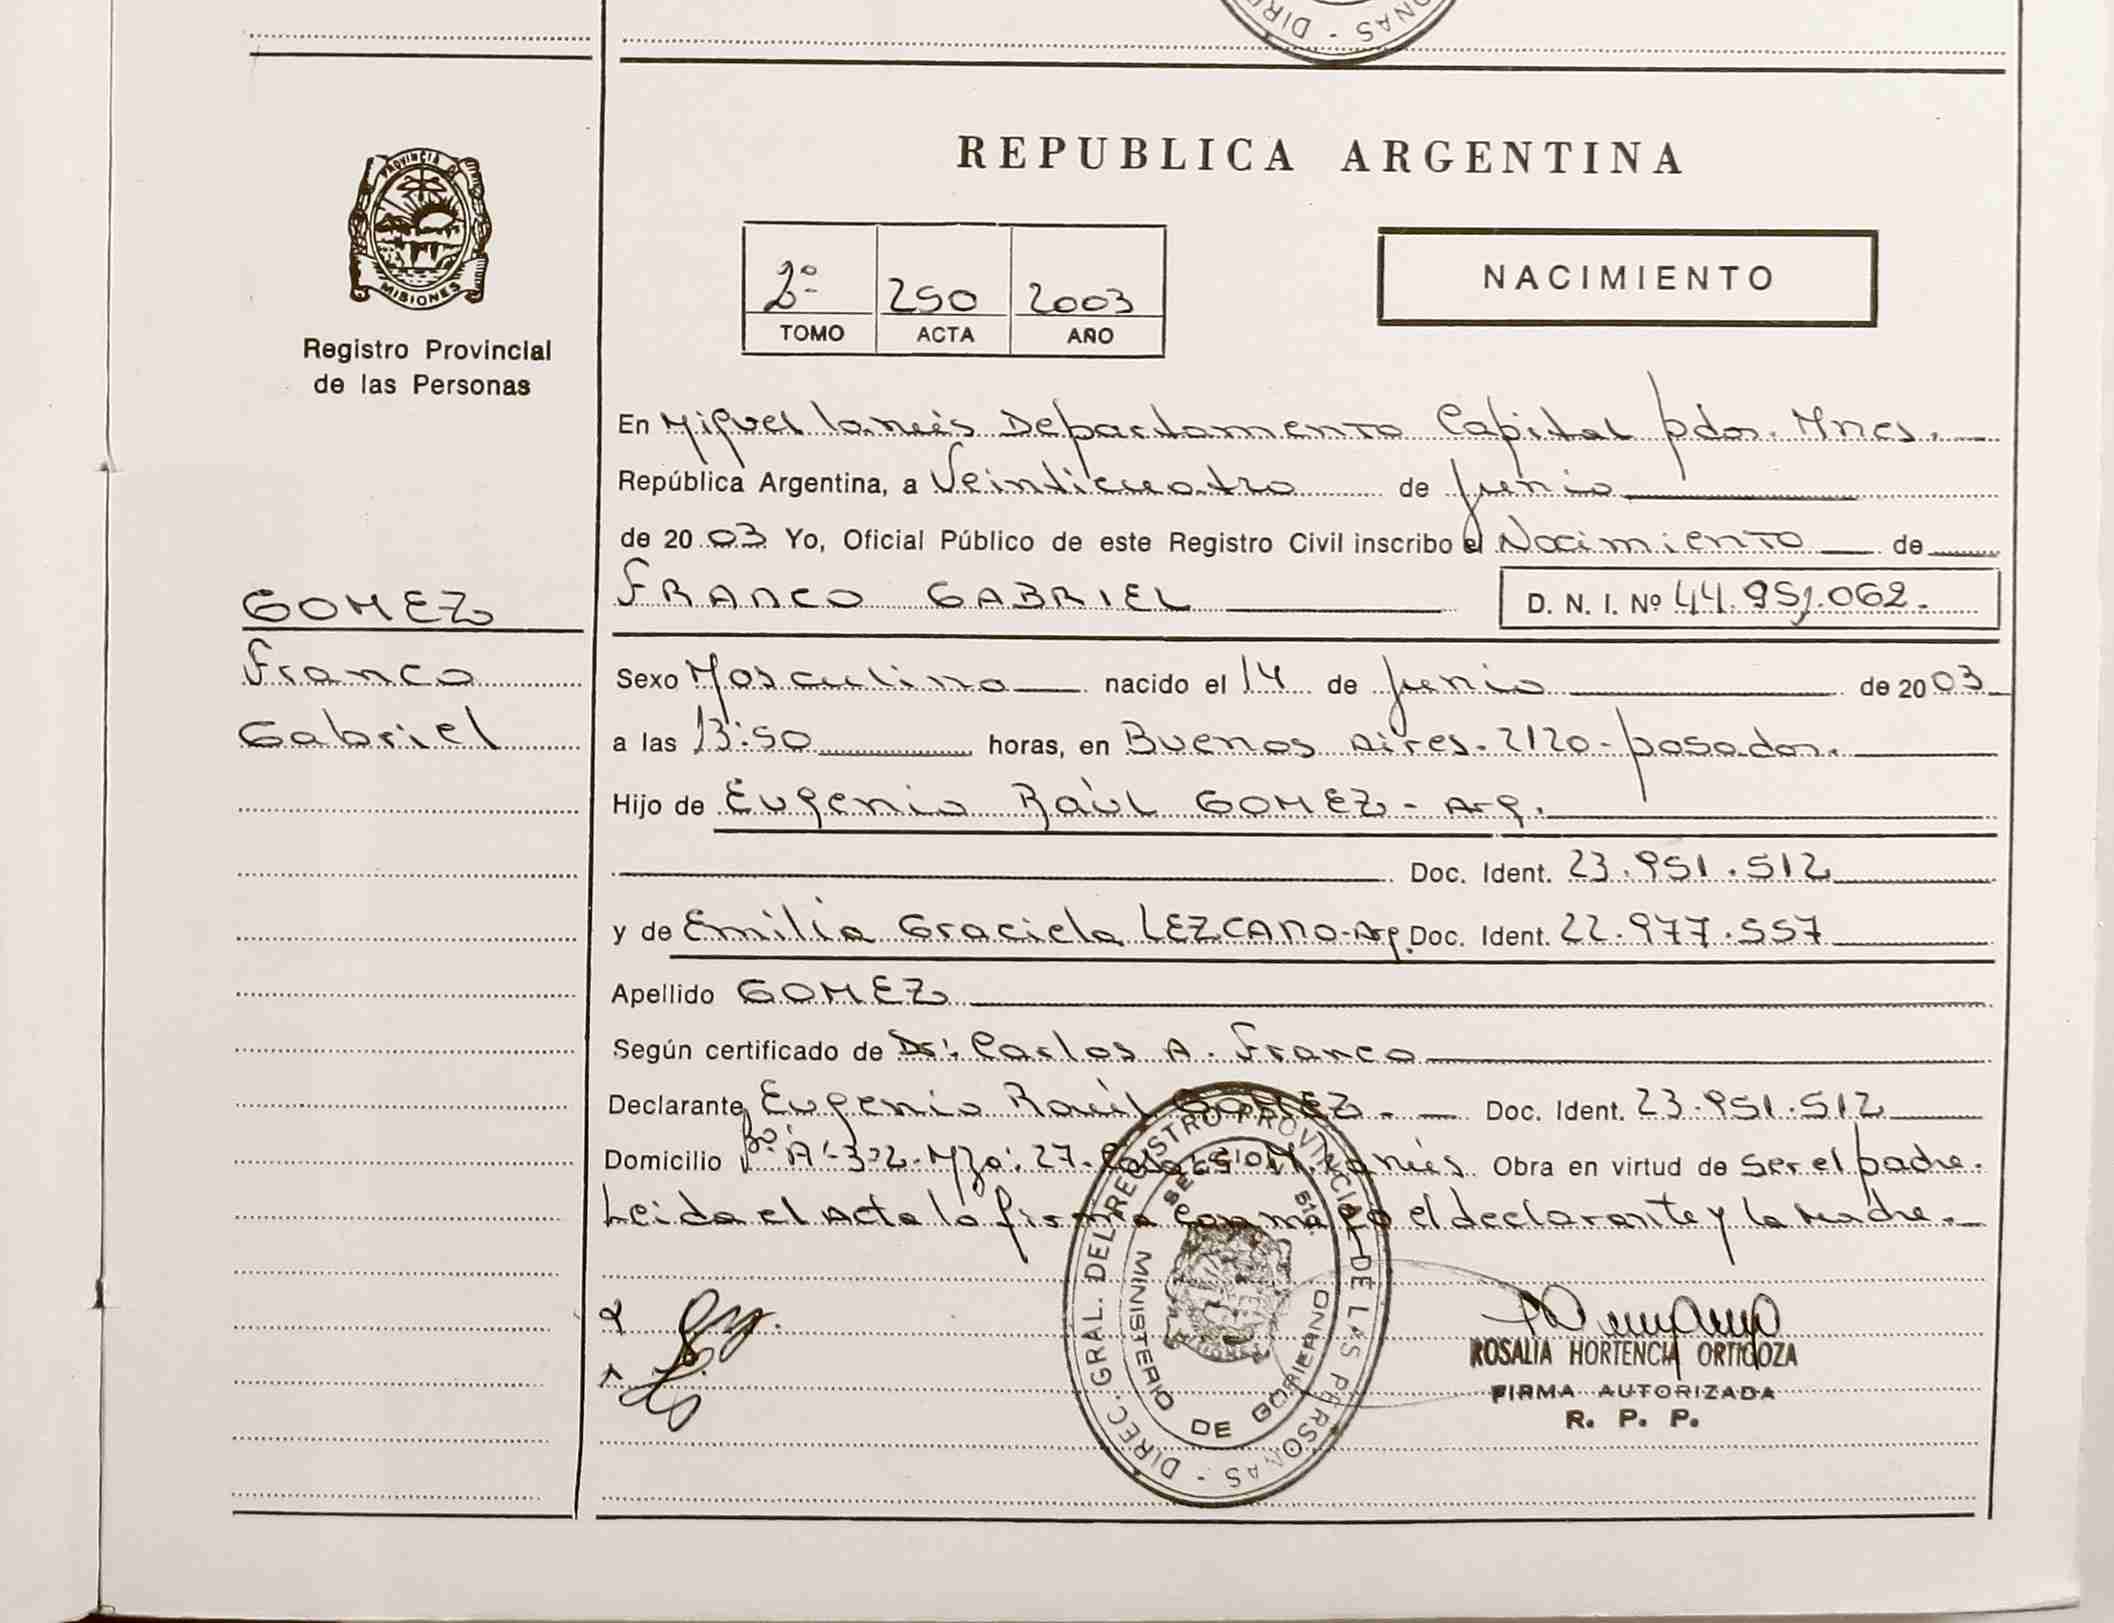 DIREC
ONAS - DIRE
PROVINCIA DE
MISIONES
Registro Provincial
de las Personas
REPUBLICA ARGENTINA
2º 250 2003
TOMO ACTA AÑO
NACIMIENTO
En Miguel Lanús Departamento Capital pdas. Mnes.
República Argentina, a Veinticuatro de junio
de 2003 Yo, Oficial Público de este Registro Civil inscribo el Nacimiento de
FRANCO GABRIEL D. N. I. Nº 44.951.062.
GOMEZ
Franco
Gabriel
Sexo Masculino nacido el 14 de junio de 2003
a las 13:50 horas, en Buenos Aires. 2120-posadas.
Hijo de Eugenio Raúl GOMEZ - Arg.
Doc. Ident. 23.951.512
y de Emilia Graciela LEZCANO-Arg. Doc. Ident. 22.977.557
Apellido GOMEZ
Según certificado de Dr. Carlos A. Franco
Declarante Eugenio Raúl GOMEZ. - Doc. Ident. 23.951.512
Domicilio Bº A-3-2. Mza: 27. Lanús. Obra en virtud de Ser el padre.
Leida el Acta la firma conmigo el declarante y la madre.
DIREC. GRAL. DEL REGISTRO PROVINCIAL DE LAS PERSONAS
MINISTERIO DE GOBIERNO
ROSALIA HORTENCIA ORTIGOZA
FIRMA AUTORIZADA
R. P. P.